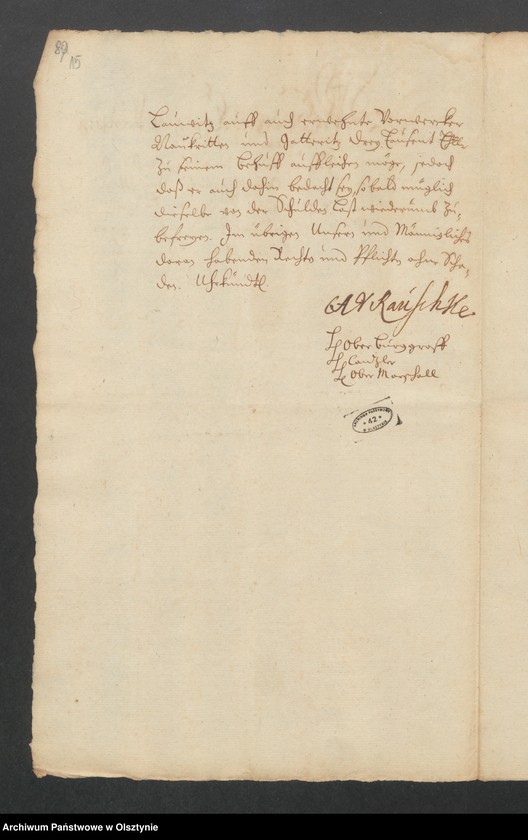 89
15
Lauwitz auff auch erwehnte Vorwercker
Naukritten und Jatteritz drey Tausent
Zu seinem behuff auffleihen möge, jedoch
daß er auch dahin bedacht sey, so bald müglich
dieselbe von der Schulden Last wiederumb Zu-
befreyen. Im übrigen Unsern und Männigliches
daran habenden Rechts und Pflichts ohne Scha-
den. Uhrkundtl.
AvRauschke
Ober Burggraff
Cantzler
Ober Marschall
ARCHIWUM PAŃSTWOWE
* 42 *
W OLSZTYNIE
Archiwum Państwowe w Olsztynie